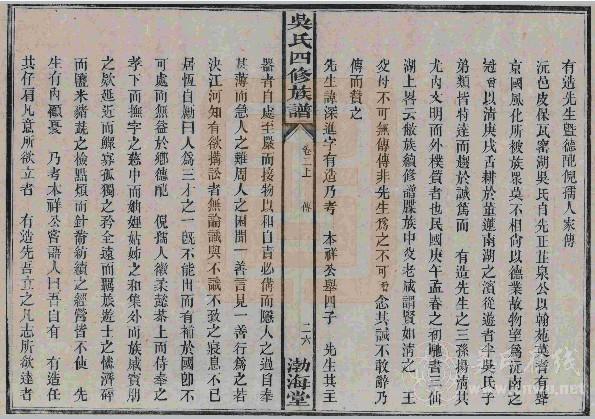 有造先生暨德配倪孺人家傳
沅邑皮保瓦窰湖吳氏自先正芷泉公以翰苑英耆有聲
京國風化所被族眾莫不相尙以德業故物望爲沅南之
冠曾以清庚戌舌耕於董蓮南湖之濱從遊者吳氏子
弟類皆特達而趨於誠篤而 有造先生之三孫揚清其
尤內文明而外樸質者也民國庚午孟春之初馳書三仙
湖上畧云敝族續修譜牒族中父老咸謂賢如清之 王
父母不可無傳傳非先生爲之不可曾念其誠不敢辭乃
傳而贊之
先生諱深道字有造乃考 本祥公舉四子 先生其三
吳氏四修族譜
卷二上 傳
二六
渤海堂
器者自處至嚴而接物以和自責必備而隱人之過自奉
甚薄而急人之難周人之困聞一善言見一善行爲之若
決江河知有欲搆訟者無論識與不識不致之寢息不已
居恆自勵曰人爲三才之一旣不能出而有補於國卽不
可處而無益於鄉德配 倪孺人徽柔懿恭上而侍奉之
孝下而撫字之慈中而妯娌姑姊之和集外而族戚賓朋
之欵延近而鰥寡孤獨之矜全遠而羈旅遊士之優濟碎
而鹽米豬蔬之檢點煩而針黹紡績之經營皆不使 先
生有內顧憂 乃考本祥公嘗語人曰吾自有 有造任
其仔肩凡意所欲立者 有造先吾立之凡志所欲達者